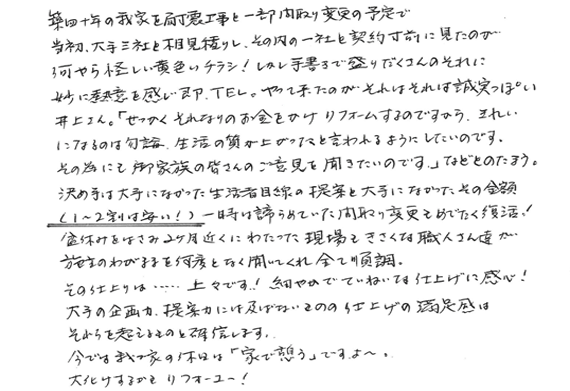 築四十年の我家を耐震工事と一部間取り変更の予定で
当初、大手三社と相見積りし、その内の一社と契約寸前に見たのが
何やら怪しい黄色いチラシ！しかし手書きで盛りだくさんのそれに
妙に熱意を感じ即、TEL。やって来たのがそれはそれは誠実っぽい
井上さん。「せっかくそれなりのお金をかけリフォームするのですから、きれい
になるのは勿論、生活の質が上がったなと言われるようにしたいのです。
その為にも御家族の皆さんのご意見を聞きたいのです。」などとのたまう。
決め手は大手になかった生活者目線の提案と大手になかったその金額
(1〜2割は安い！) 一時は諦らめていた間取り変更もめでたく復活！
盆休みをはさみ2ヶ月近くにわたった現場もきさくな職人さん達が
施主のわがままを何度となく聞いてくれ全て順調。
その仕上りは……上々です！細やかでていねいな仕上げに感心！
大手の企画力、提案力には及ばないもののの仕上げの満足感は
それらを超えるものと確信します。
今では我が家の休日は「家で憩う」ですよ〜。
大化けするかも リフォーユー！